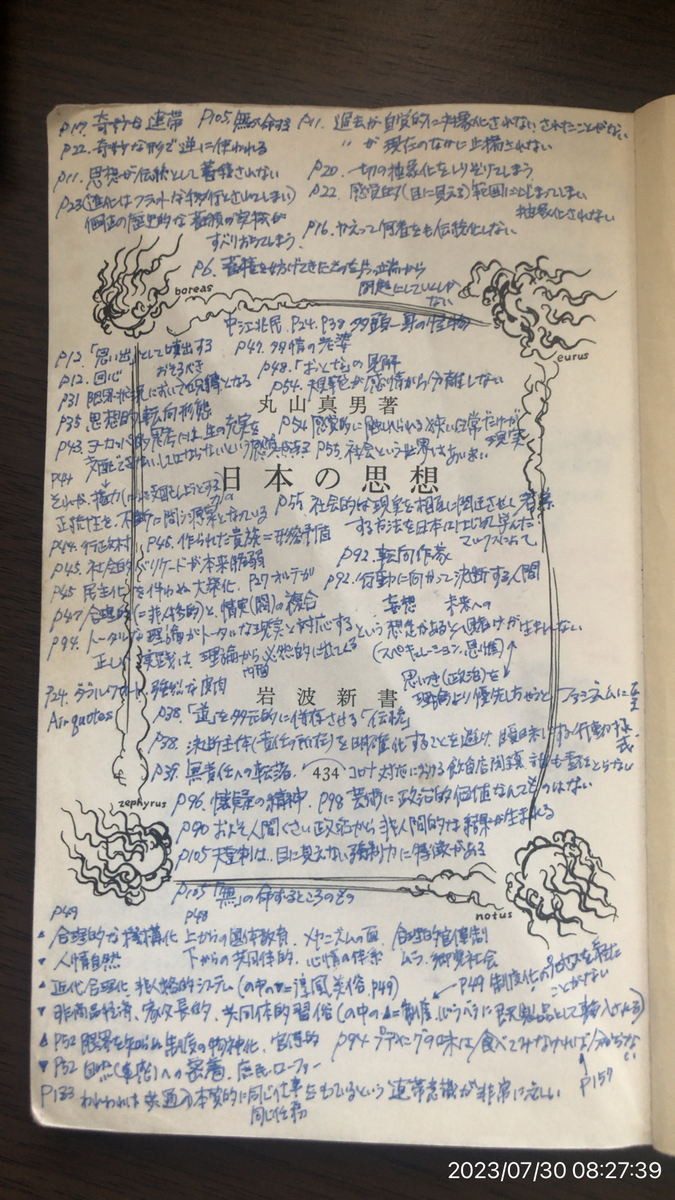 P17. 奇妙な連帯 P105. 無の命ずる P11. 過去が自覚的に対象化されない されたことがない
P22. 奇妙な形で逆に使われる 〃 が現在のなかに止揚されない
P11. 思想が伝統として蓄積されない P20. 一切の抽象化をしりぞけてしまう
P23(進化はフラットな移行とされてしまい) P22. 感覚的(目に見える)範囲に止まってしまい
個性の歴史的な の究極が 抽象化されない
すべりおちてしまう. P16. かえって何者をも伝統化しない
P6. 蓄積を妨げてきたきたものを
問題にしていしか
ない
boreas
eurus
中江兆民. P24. P38 多頭一身の怪物
P12.「思い出」として噴出する P47. 多情の老婆
おそるべき
P12. 回心 P48.「おとな」の見解
P31 限界状況において となる P54. 規範が感情から分離しない
丸山真男著
P35 思想的転向形態 P54 感覚的に触れられる狭い日常だけが
現実
P43. ヨーロッパ的思考には生の充実を P55. 社会という世界はあいまい
P44
日本の思想
それは、権力(の)を支配しようとする
P55 社会的な現実を相互に関連させて考察
正統性を不断に問う源泉となっている する方法を日本にはじめて学んだ
マルクスによって
P44. 行政村 P46. 作られた貴族=形容矛盾
P45. 社会的バリケードが本来脆弱 P92. 転向作家
P45 民主化を伴わぬ大衆化. P27 オルテガ P92. 行動に向かって決断する人間
P47 合理的(=非人格的)と、情実(閥)の複合 妄想 未来への
P94. トータルな理論がトータルな現実と対応するという想定があると、賭けが生まれない
正しい実践は、理論から必然的に出てくる (スペキュレーション、思惟)
内面
思いつき(政治)を
P24.
岩波新書
理論より優先しちゃうとファシズムに至
る
Air quotes P38.「道」を多元的に併存させる「伝統」
P38. 決断主体(責任の所在)を明確化することを避け、曖昧 する行動様
式.
P39. 無責任への転落. 434 コロナ対応における飲食店閉鎖 誰も責任とらない
zephyrus
P96. 懐疑の精神. P98 芸術に政治的価値なんてものはない
P90 およそ人間くさい政治から非人間的な結果が生まれる
P105 天皇制は、目に見えない強制力に特徴がある
P105「無」の命ずるところのもの
notus
P49 P48
▲ 合理的な機構化 上からの国体教育、メカニズムの面、合理的官僚制
▼ 人情自然 下からの共同体的、心情の体系 ムラ、郷党社会
▲ 近代合理化、非人格的システム (の中の▼=淳風美俗. P49) P49 制度化の を経た
ことがない
▼ 非商品経済、家父長的、共同体的習俗 (の中の▲=制度、 に既製品として輸入される)
▲ P52 限界を知らぬ制度の物神化、官僚的 P94 プディングの味は、食べてみなければ分からな
い
▼ P52 自然(実感)への密着、庶民・ローファー
P157
P133 われわれは共通の本質的に同じ仕事をもっているという連帯意識が非常に乏しい
同じ任務
2023/07/30 08:27:39